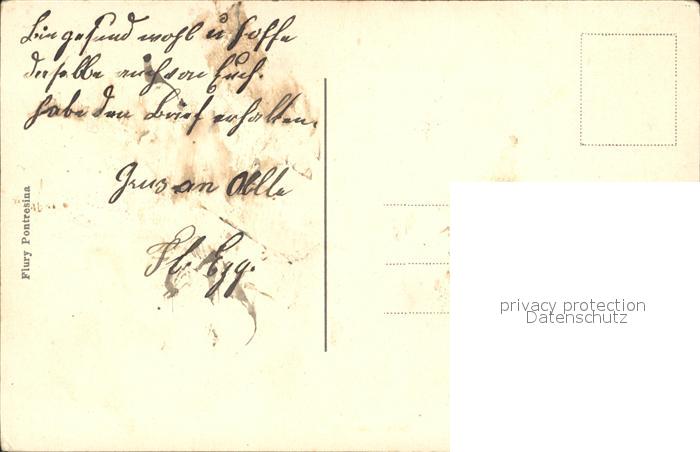 Bin gesund wohl u hoffe
dasselbe auch von Euch.
habe den Brief erhalten.
Gruss an Alle
Egg.
Flury Pontresina
privacy protection
Datenschutz